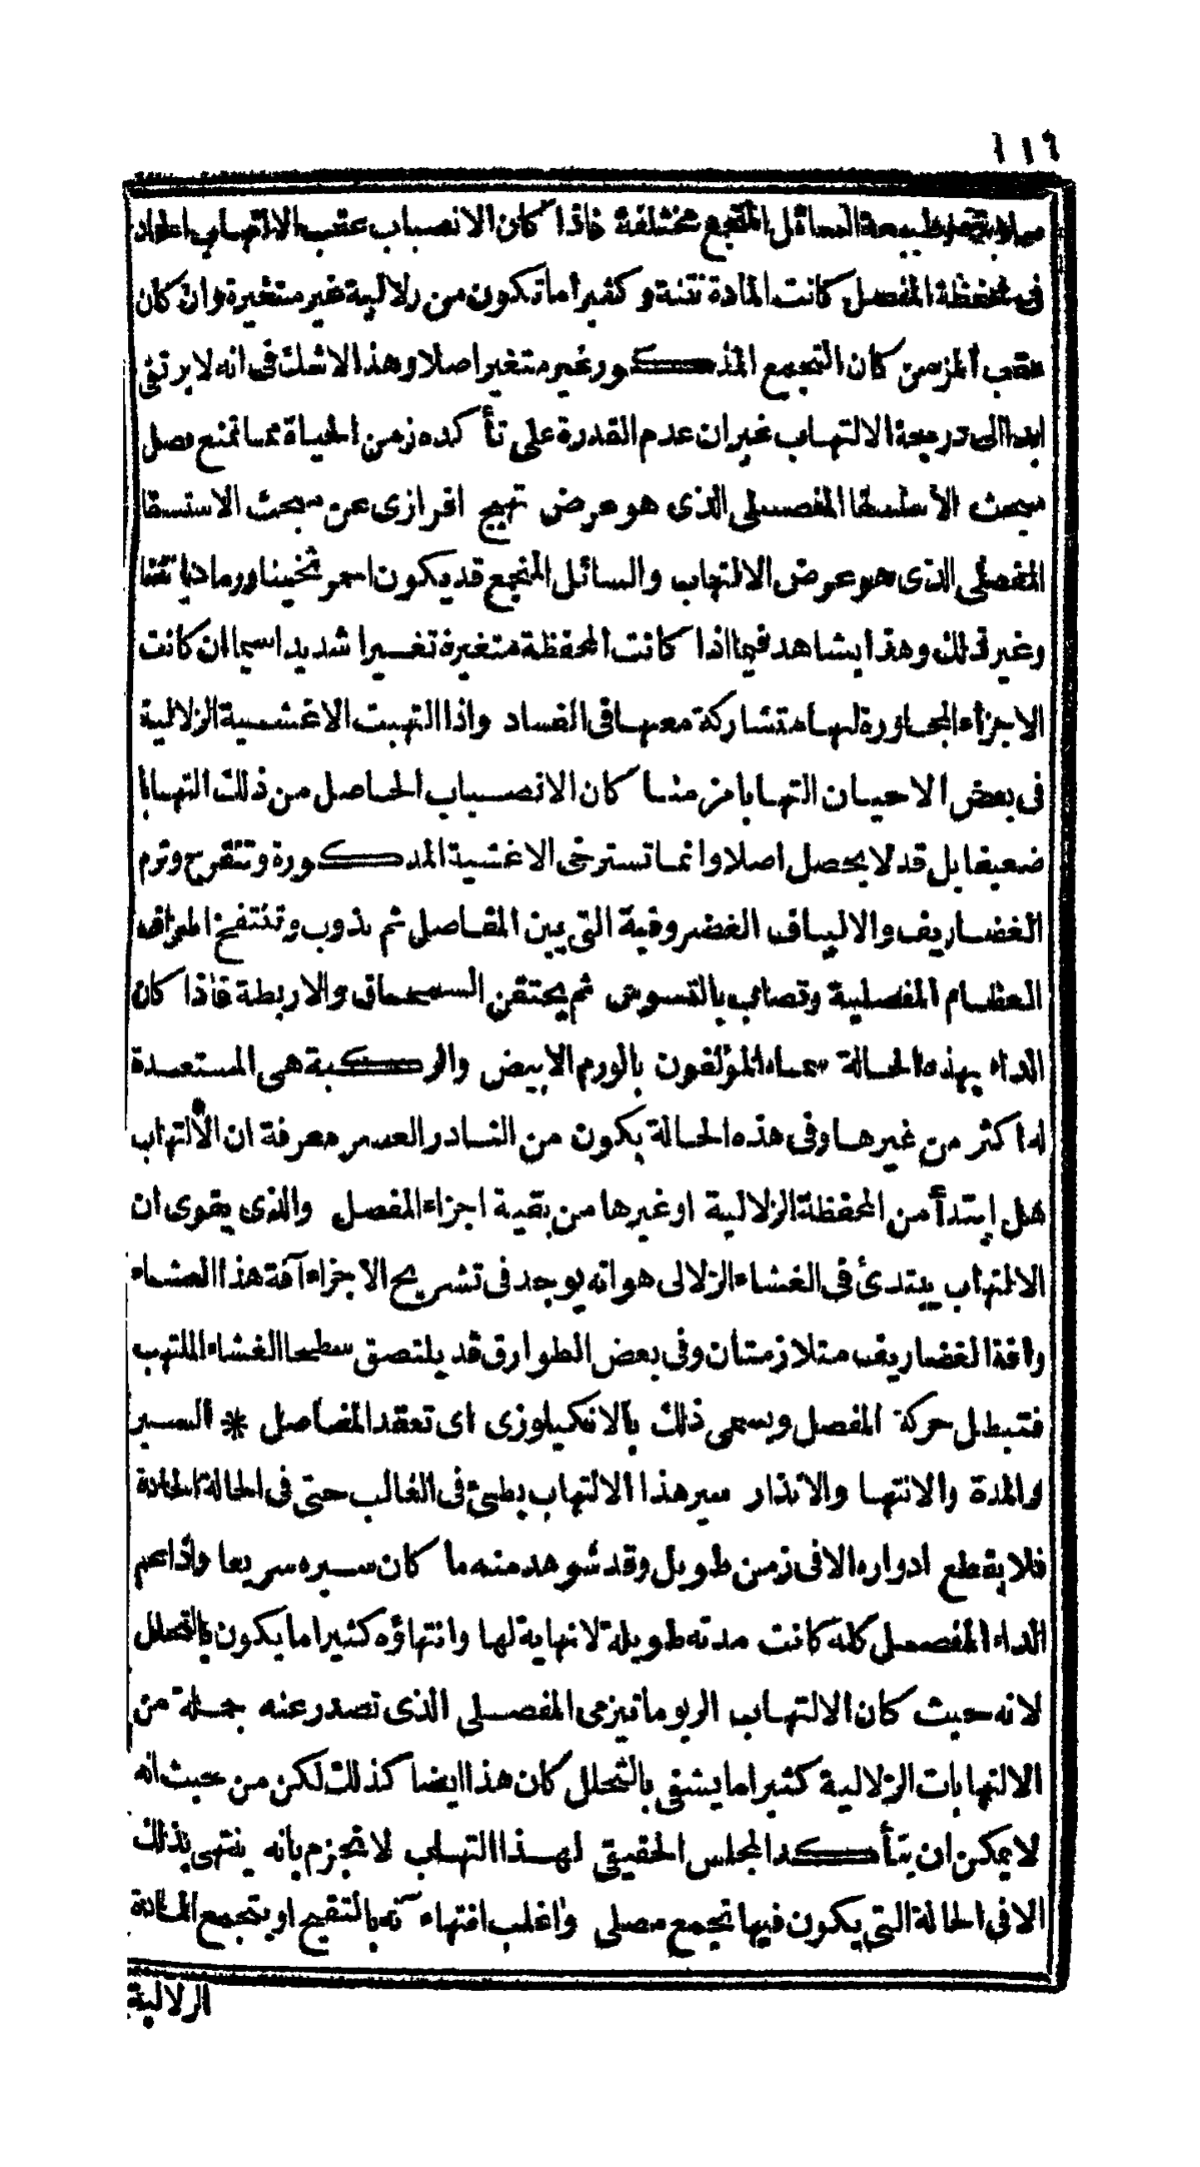 ١١٦
وطبيعة السائل المتجمع مختلفة فاذا كان الانصباب عقب الالتهاب الحاد
فى محفظة المفصل كانت المادة نتنة وكثيرا ما تكون من زلالية غير متغيرة وان كان
عقب المزمن كان التجمع المذكور غير متغير اصلا وهذا لاشك فى انه لا يرتقى
ابدا الى درجة الالتهاب غير ان عدم القدرة على تأكده زمن الحياة مما تمنع فصل
مبحث الاستسقا المفصلى الذى هو عرض تهيج افرازى عن مبحث الاستسقا
المفصلى الذى هو عرض الالتهاب والسائل المتجمع قد يكون احمر ثخينا ورماديا نتنا
وغير ذلك وهذا يشاهد فيما اذا كانت المحفظة متغيرة تغيرا شديدا سيما ان كانت
الاجزاء المجاورة لها متشاركة معها فى الفساد واذا التهبت الاغشية الزلالية
فى بعض الاحيان التهابا مزمنا كان الانصباب الحاصل من ذلك التهابا
ضعيفا بل قد لا يحصل اصلا وانما تسترخى الاغشية المذكورة وتتقرح وترم
الغضاريف والالياف الغضروفية التى بين المفاصل ثم تذوب وتنتفخ اطراف
العظام المفصلية وتصاب بالتسوس ثم يحتقن السمحاق والاربطة فاذا كان
الداء بهذه الحالة سماه المؤلفون بالورم الابيض والركبة هى المستعدة
له اكثر من غيرها وفى هذه الحالة يكون من النادر العسر معرفة ان الالتهاب
هل ابتدأ من المحفظة الزلالية او غيرها من بقية اجزاء المفصل والذى يقوى ان
الالتهاب يبتدئ فى الغشاء الزلالى هو انه يوجد فى تشريح الاجزاء آفة هذا الغشاء
وافة الغضاريف متلازمتان وفى بعض الطوارق قد يلتصق سطحا الغشاء الملتهب
فتبطل حركة المفصل ويسمى ذلك بالانكيلوزى اى تعقد المفاصل * السير
والمدة والانتها والانذار سير هذا الالتهاب بطئ فى الغالب حتى فى الحالة الحادة
فلا يقطع ادواره الا فى زمن طويل وقد شوهد منه ما كان سيره سريعا واذا عم
الداء المفصل كله كانت مدته طويلة لانهاية لها وانتهاؤه كثيرا ما يكون بالتحلل
لانه حيث كان الالتهاب الريوماتيزمى المفصلى الذى تصدر عنه جملة من
الالتهابات الزلالية كثيرا ما يشفى بالتحلل كان هذا ايضا كذلك لكن من حيث انه
لا يمكن ان يتأكد المجلس الحقيقى لهذا التهاب لا نجزم بانه ينتهى بذلك
الا فى الحالة التى يكون فيها تجمع مصلى واغلب انتهاءآته بالتقيح او بتجمع المادة
الزلالية